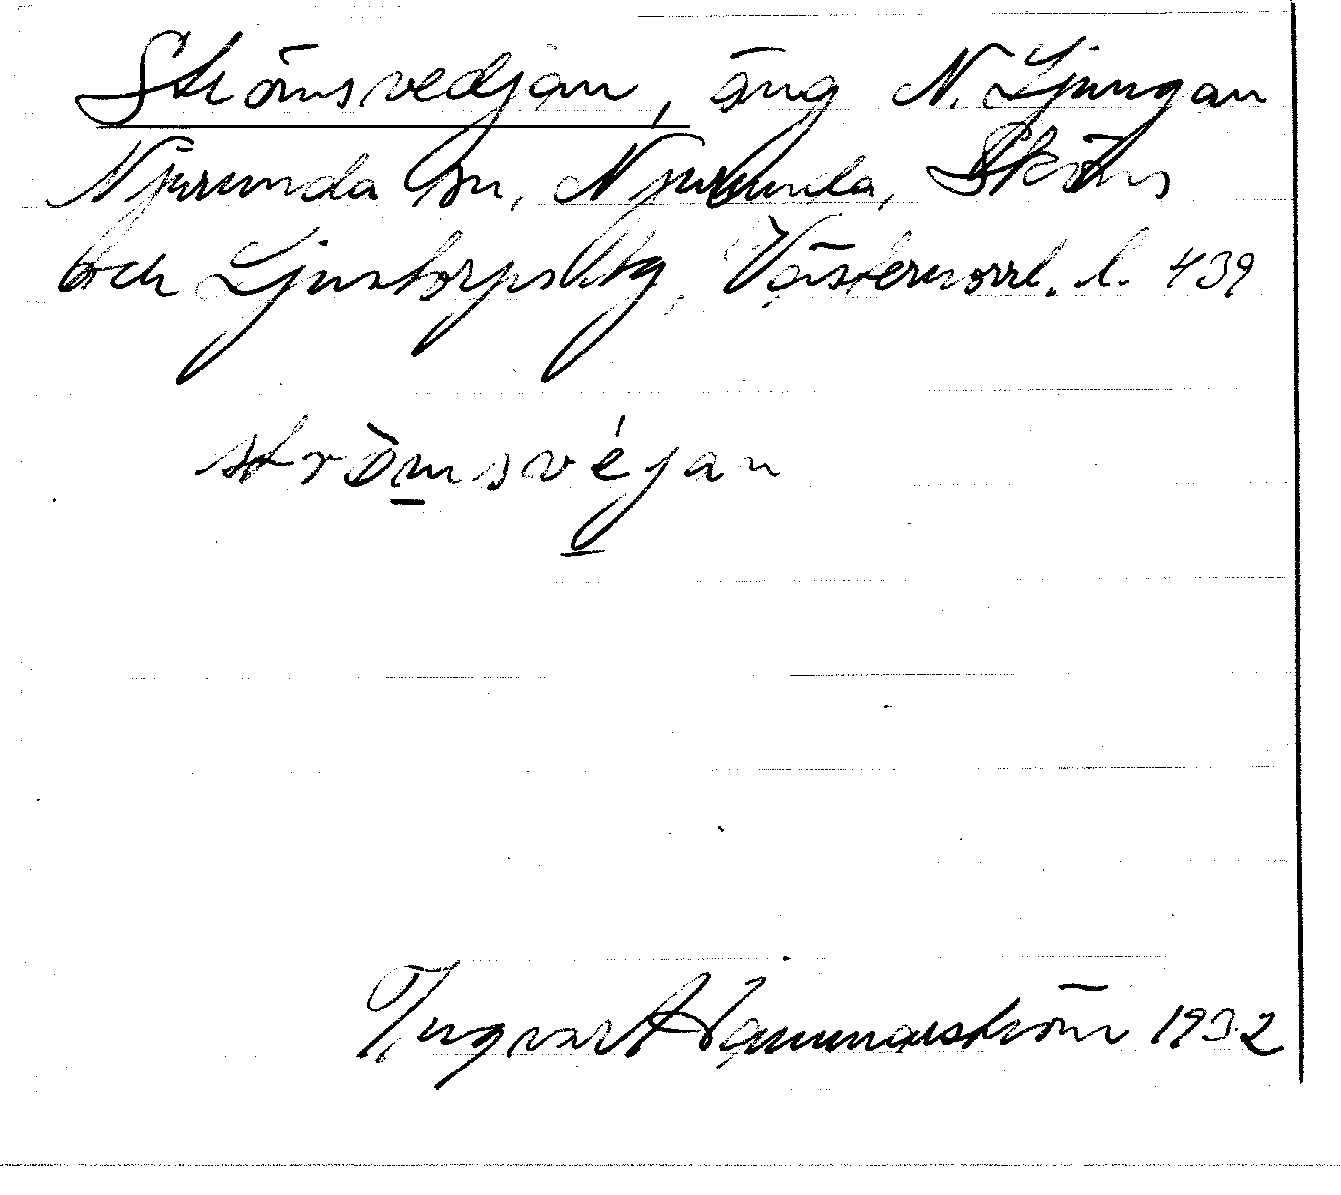 Strömsvedjan, äng N. Ljungan
Njurunda sn, Njurunda, Sköns
och Ljustorps tlg, Västernorrl. l. 439
strò̈msvéjan
Ingvar Hammarström 1932